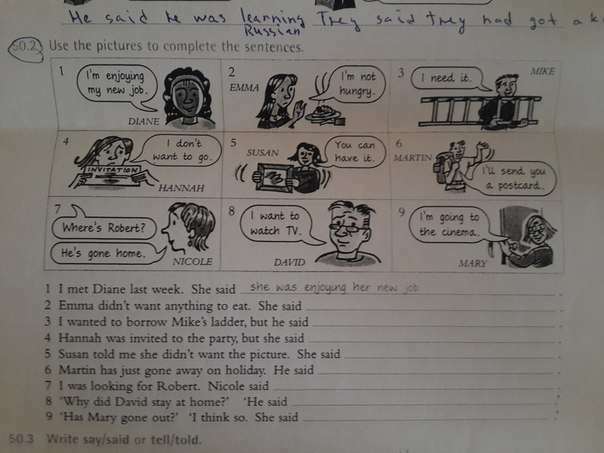 He said he was learning They said they had got a k
Russian
50.2 Use the pictures to complete the sentences.
1
I'm enjoying
my new job.
DIANE
2
EMMA
I'm not
hungry.
3
I need it.
MIKE
4
I don't
want to go.
INVITATION
HANNAH
5
SUSAN
You can
have it.
6
MARTIN
I'll send you
a postcard.
7
Where's Robert?
He's gone home.
NICOLE
8
I want to
watch TV.
DAVID
9
I'm going to
the cinema.
MARY
1 I met Diane last week. She said she was enjoying her new job .
2 Emma didn't want anything to eat. She said .
3 I wanted to borrow Mike's ladder, but he said .
4 Hannah was invited to the party, but she said .
5 Susan told me she didn't want the picture. She said .
6 Martin has just gone away on holiday. He said .
7 I was looking for Robert. Nicole said .
8 'Why did David stay at home?' 'He said .
9 'Has Mary gone out?' 'I think so. She said .
50.3 Write say/said or tell/told.